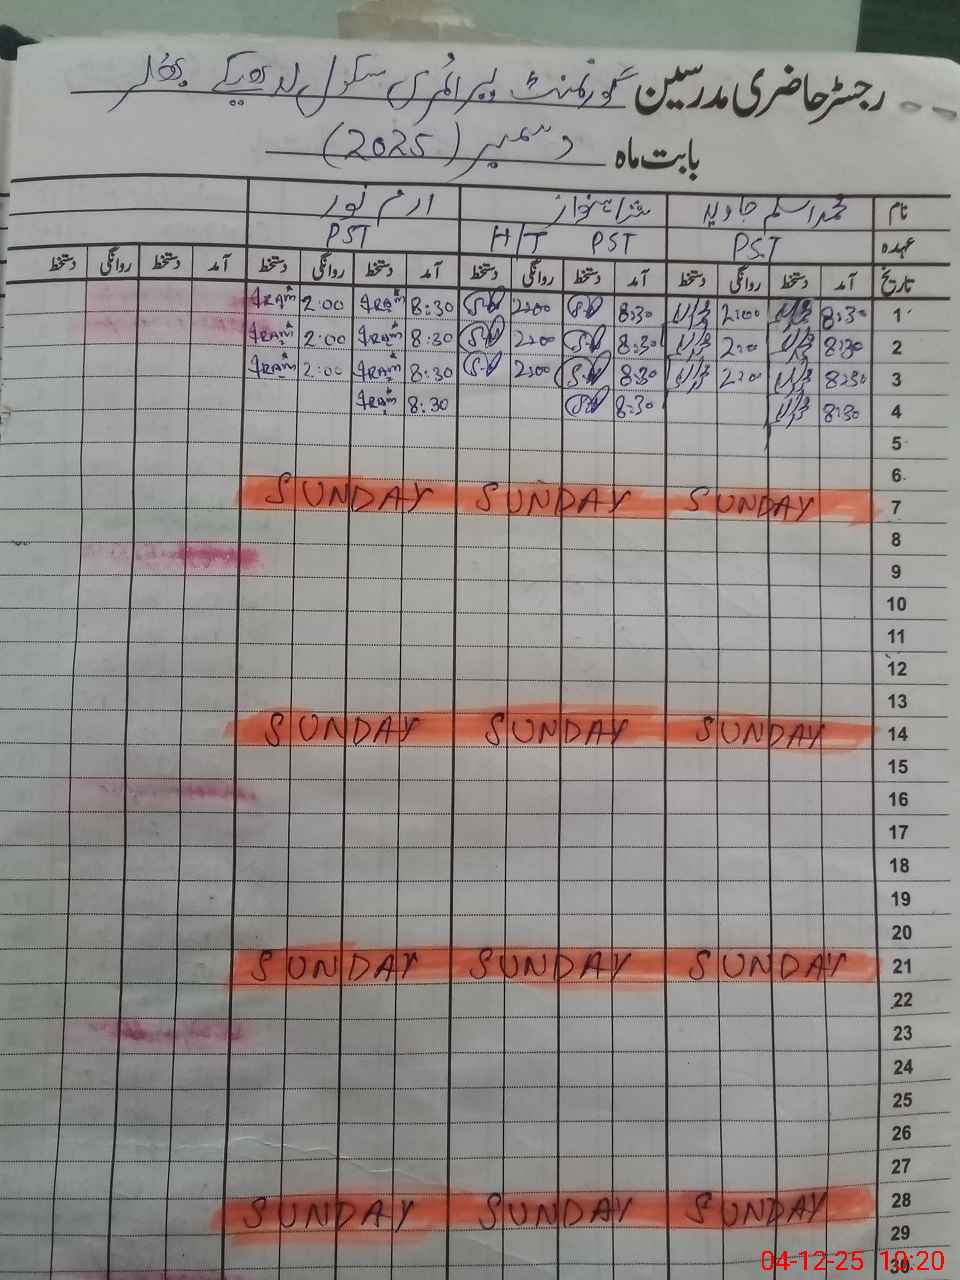 رجسٹر حاضری مدرسین گورنمنٹ پرائمری سکول
بابت ماہ دسمبر (2025)
نام محمد اسلم جاوید ارم نور
عہدہ PST PST H/T PST
تاریخ آمد دستخط روانگی دستخط آمد دستخط روانگی دستخط آمد دستخط روانگی دستخط آمد دستخط روانگی دستخط
1 8:30 2:00 8:30 2:00 8:30 Iram 2:00 Iram
2 8:30 2:00 8:30 2:00 8:30 Iram 2:00 Iram
3 8:30 2:00 8:30 2:00 8:30 Iram 2:00 Iram
4 8:30 8:30 8:30 Iram
5
6
7 SUNDAY SUNDAY SUNDAY
8
9
10
11
12
13
14 SUNDAY SUNDAY SUNDAY
15
16
17
18
19
20
21 SUNDAY SUNDAY SUNDAY
22
23
24
25
26
27
28 SUNDAY SUNDAY SUNDAY
29
30
04-12-25 10:20